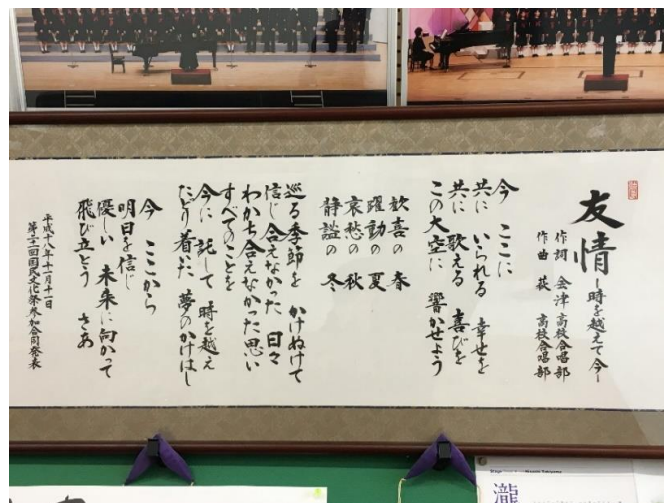 友情
ー時を越えて今ー
作詞 会津高校合唱部
作曲 萩 高校合唱部
今 ここに
共に いられる 幸せを
共に 歌える 喜びを
この大空に 響かせよう
歓喜の 春
躍動の 夏
哀愁の 秋
静謐の 冬
巡る季節を かけぬけて
信じ合えなかった 日々
わかち合えなかった思い
すべてのことを
今に 託して 時を越え
たどり着いた 夢のかけはし
今 ここから
明日を信じ
優しい 未来に向かって
飛び立とう さあ
平成十八年十一月十一日
第二十一回国民文化祭参加合同発表
瀧